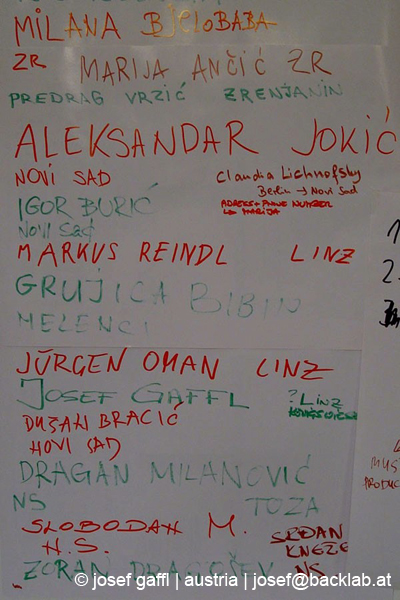 MILANA BjeloBABA
ZR MARIJA ANČIĆ ZR
PREDRAG VRZIĆ ZRENJANIN
ALEKSANDAR JOKIĆ
NOVI SAD
Claudia Lichnofsky
Berlin → Novi Sad
ADRESS + PHONE NUMBER
MARIJA
IGOR BURIĆ
NOVI SAD
MARKUS REINDL LINZ
GRUJICA BIBIN
MELENCI
JÜRGEN OMAN LINZ
JOSEF GAFFL ?LINZ
DUŠAN BRACIĆ
NOVI SAD
DRAGAN MILANOVIĆ
NS TOZA
SLOBODAN M.
N.S.
SRĐAN
KNEZE
ZORAN DRAGOŠEV NS
1
2.
MUS
PRODUC
© josef gaffl | austria | josef@backlab.at